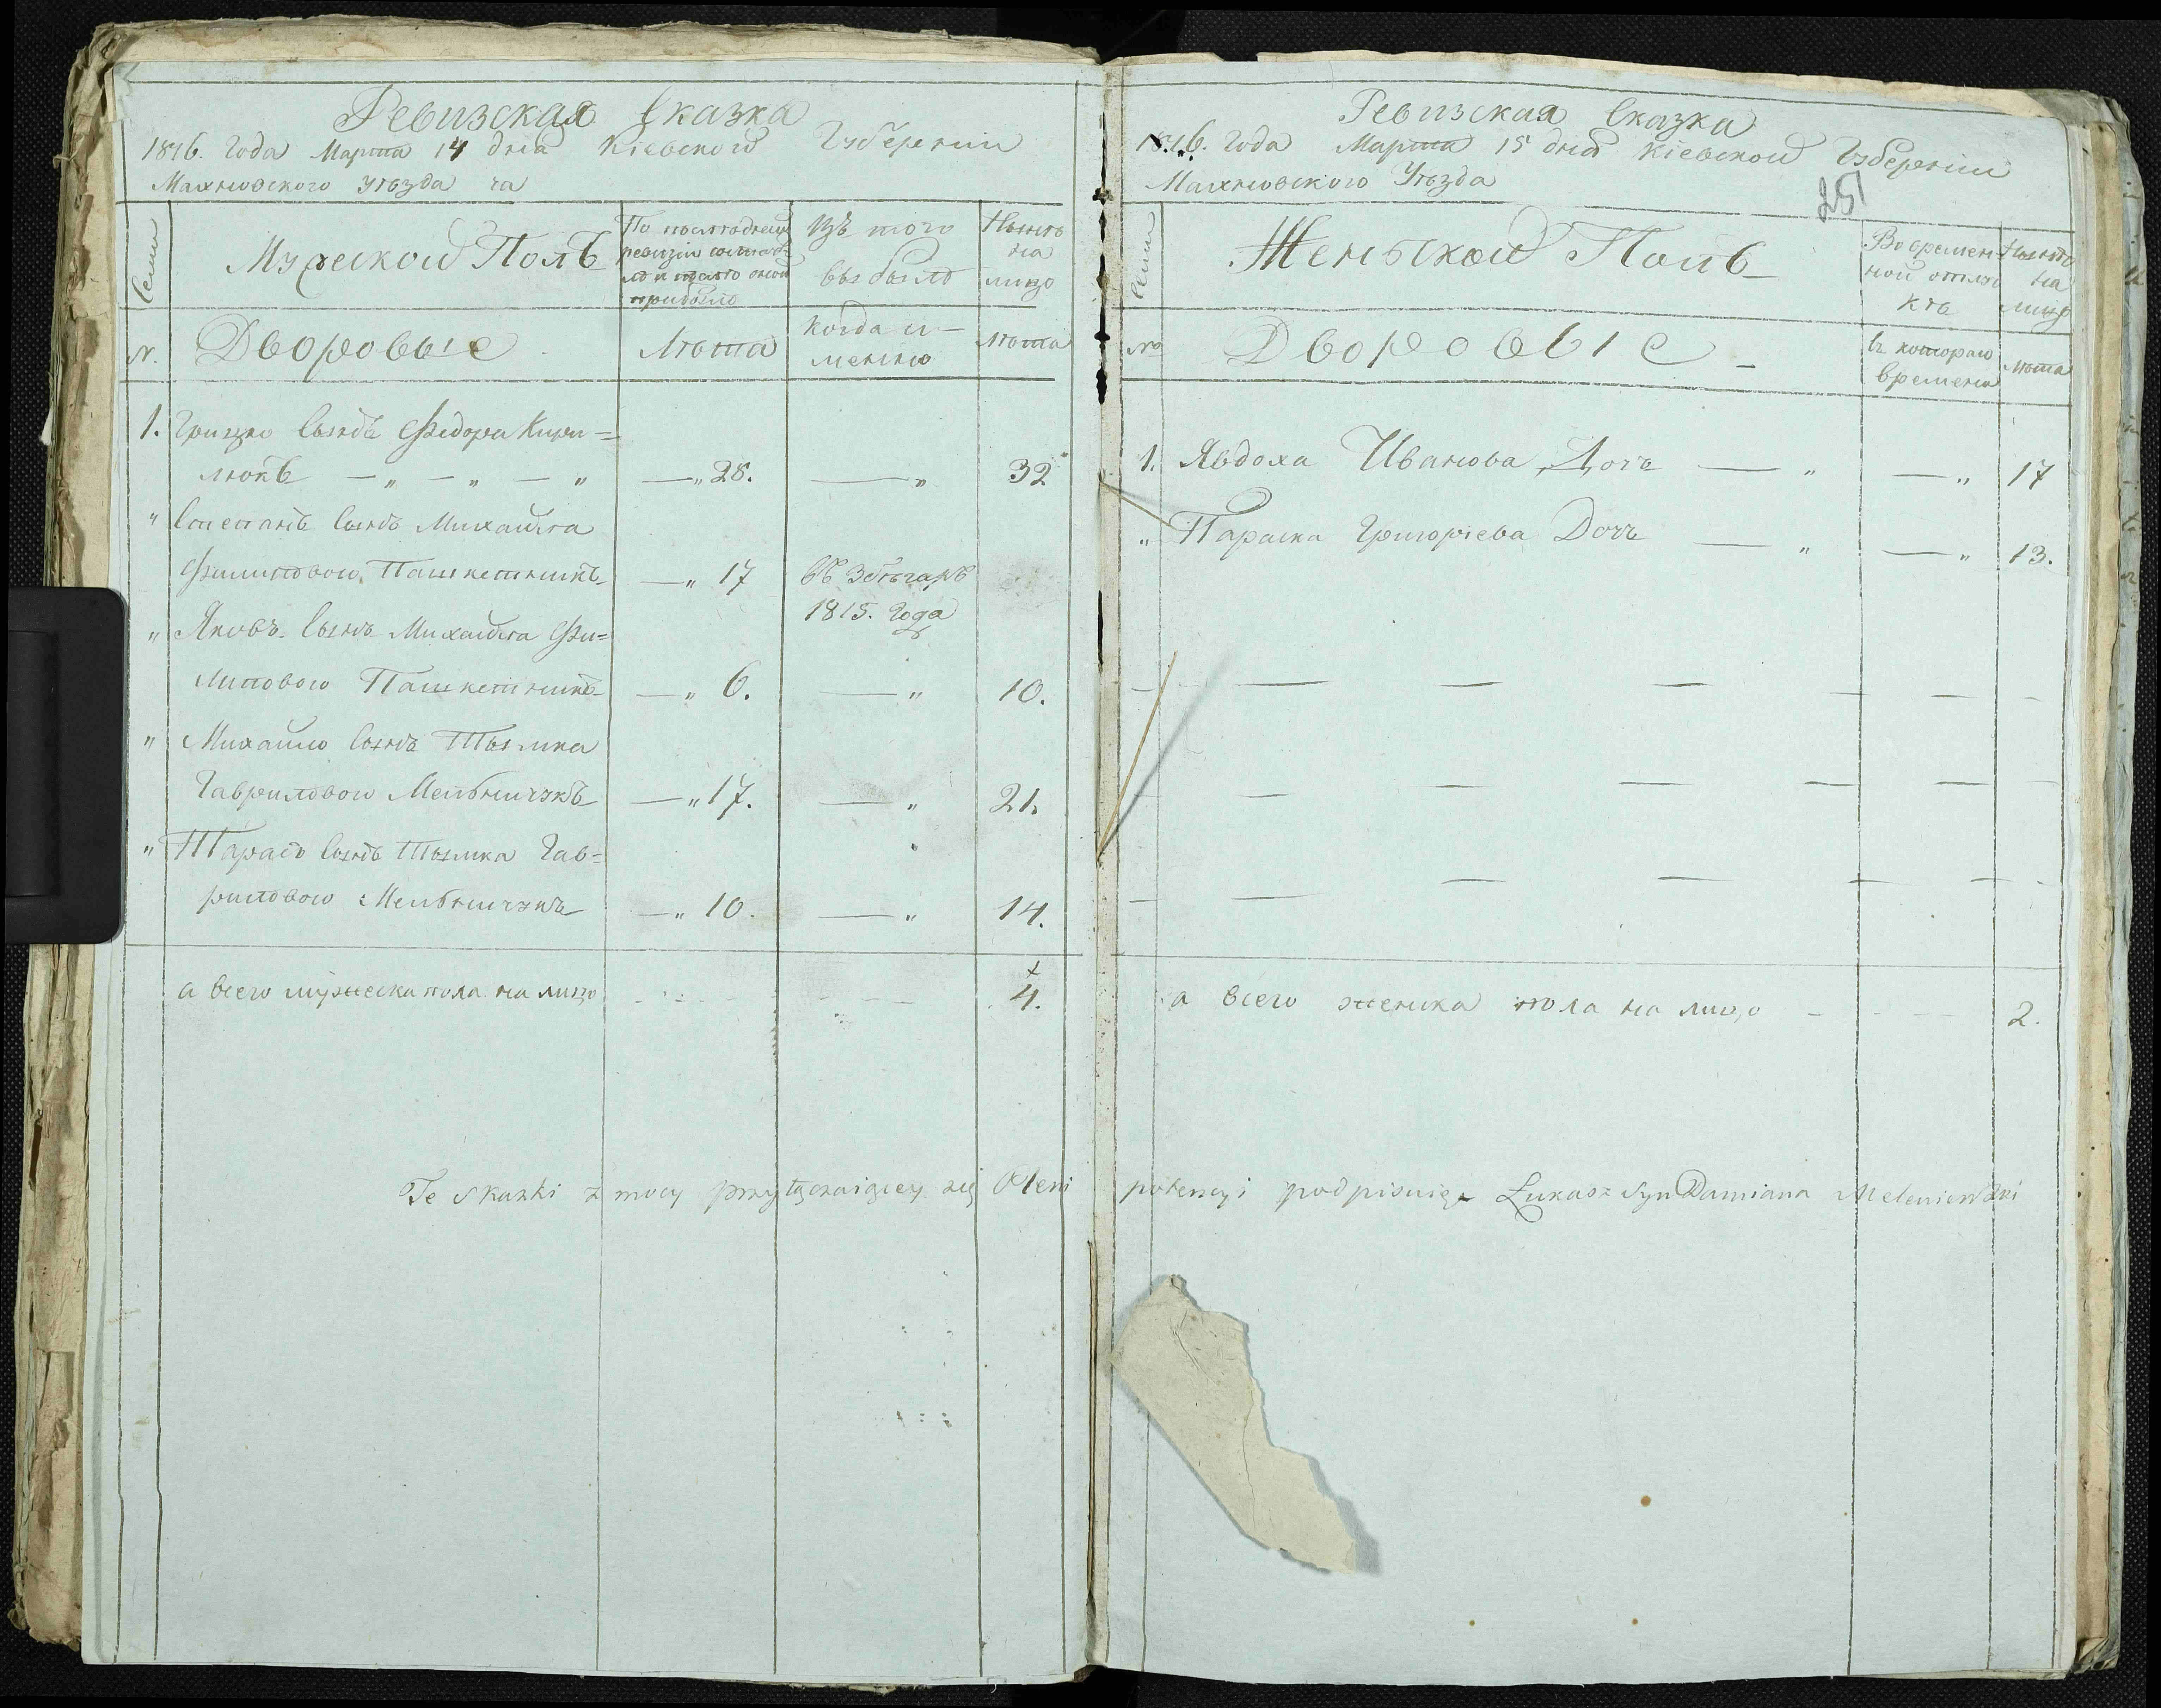 Ревизская Сказка
1816. года Марта 14 дня Кіевской Губерніи
Махновского уѣзда
Семии
Мужеской Полъ
По последней ревизіи состояло и после оной прибыло
Изъ того выбыло
Нынѣ на лицо
№.
Дворовые
Лѣта
когда именно
лѣта
1. Грицко Сынъ Федора Кири=
люкъ — " — " — " — " 28. — " 32
" Степанъ Сынъ Михайла
Филипового Пашкетникъ — " 17 въ
1815. Года
" Яковъ Сынъ Михайла Фи=
липового Пашкетникъ — " 6. — " 10.
" Михайло Сынъ Тымка
Гаврилового Мельничукъ — " 17. — " 21.
" Тарасъ Сынъ Тымка Гав=
рилового Мельничукъ — " 10. — " 14.
а всего мужеска пола на лицо 4.
Ревизская Сказка
1816. года Марта 15 дня Кіевской Губерніи
Махновского Уѣзда
251
Семии
Женьской Полъ
Во временной отлучкѣ
Нынѣ на лицо
№
Дворовые
съ которого времени
лѣта
1. Явдоха Иванова Дочь — " — " 17
" Параска Григоріева Дочь — " — " 13.
а всего женска пола на лицо 2.
Te skazki z mocy przyłączaiącey się Pleni potencyi podpisuię Łukasz Syn Damiana Meleniewski